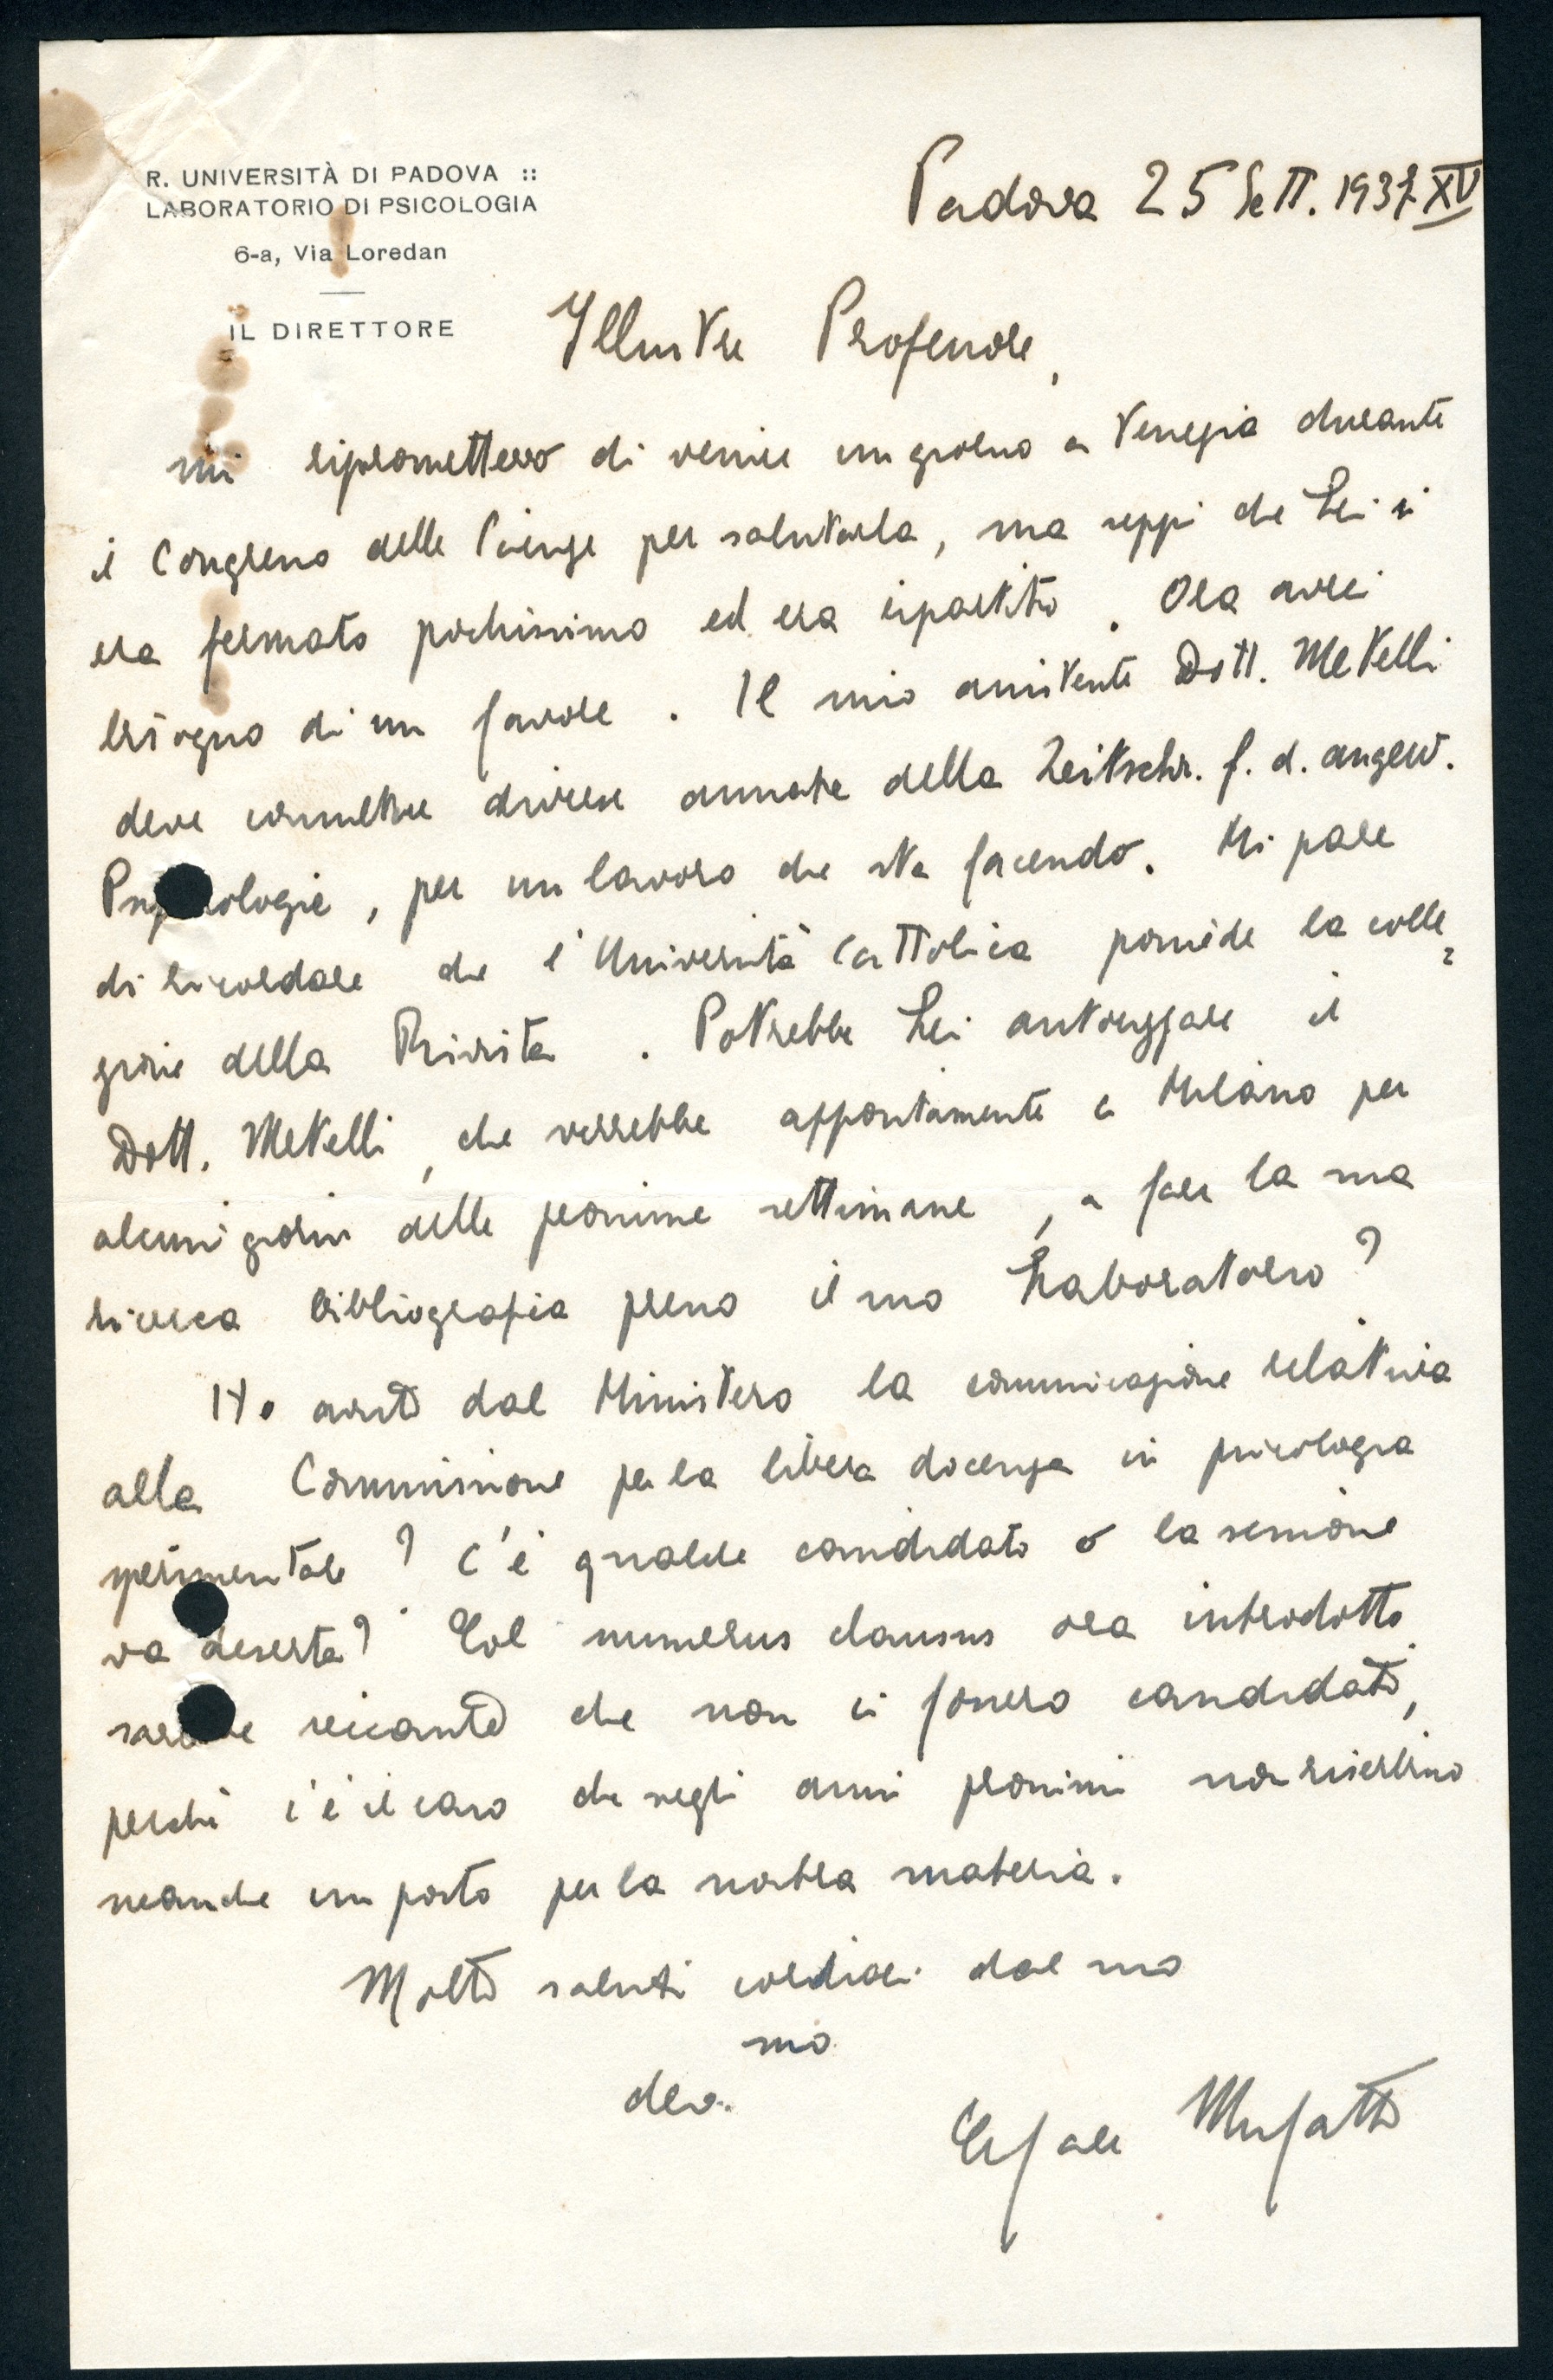 R. UNIVERSITÀ DI PADOVA ::
LABORATORIO DI PSICOLOGIA
6-a, Via Loredan
IL DIRETTORE
Padova 25 Sett. 1937 XV
Illustre Professore,
mi ripromettevo di venire un giorno a Venezia durante
il Congresso delle Scienze per salutarla, ma seppi che Lei si
era fermato pochissimo ed era ripartito. Ora avrei
bisogno di un favore. Il mio assistente Dott. Metelli
deve consultare diverse annate della Zeitschr. f. d. angew.
Psychologie, per un lavoro che sta facendo. Mi pare
di ricordare che l'Università Cattolica possiede la colle=
zione della Rivista. Potrebbe Lei autorizzare il
Dott. Metelli, che verrebbe appositamente a Milano per
alcuni giorni delle prossime settimane, a fare la sua
ricerca bibliografica presso il suo Laboratorio?
Ha avuto dal Ministero la comunicazione relativa
alla Commissione per la libera docenza in psicologia
sperimentale? C'è qualche candidato o la sessione
va deserta? Col numerus clausus ora introdotto
sarebbe seccante che non ci fossero candidati,
perchè c'è il caso che negli anni prossimi non riserbino
neanche un posto per la nostra materia.
Molti saluti cordiali dal suo
dev.mo
Cesare Musatti